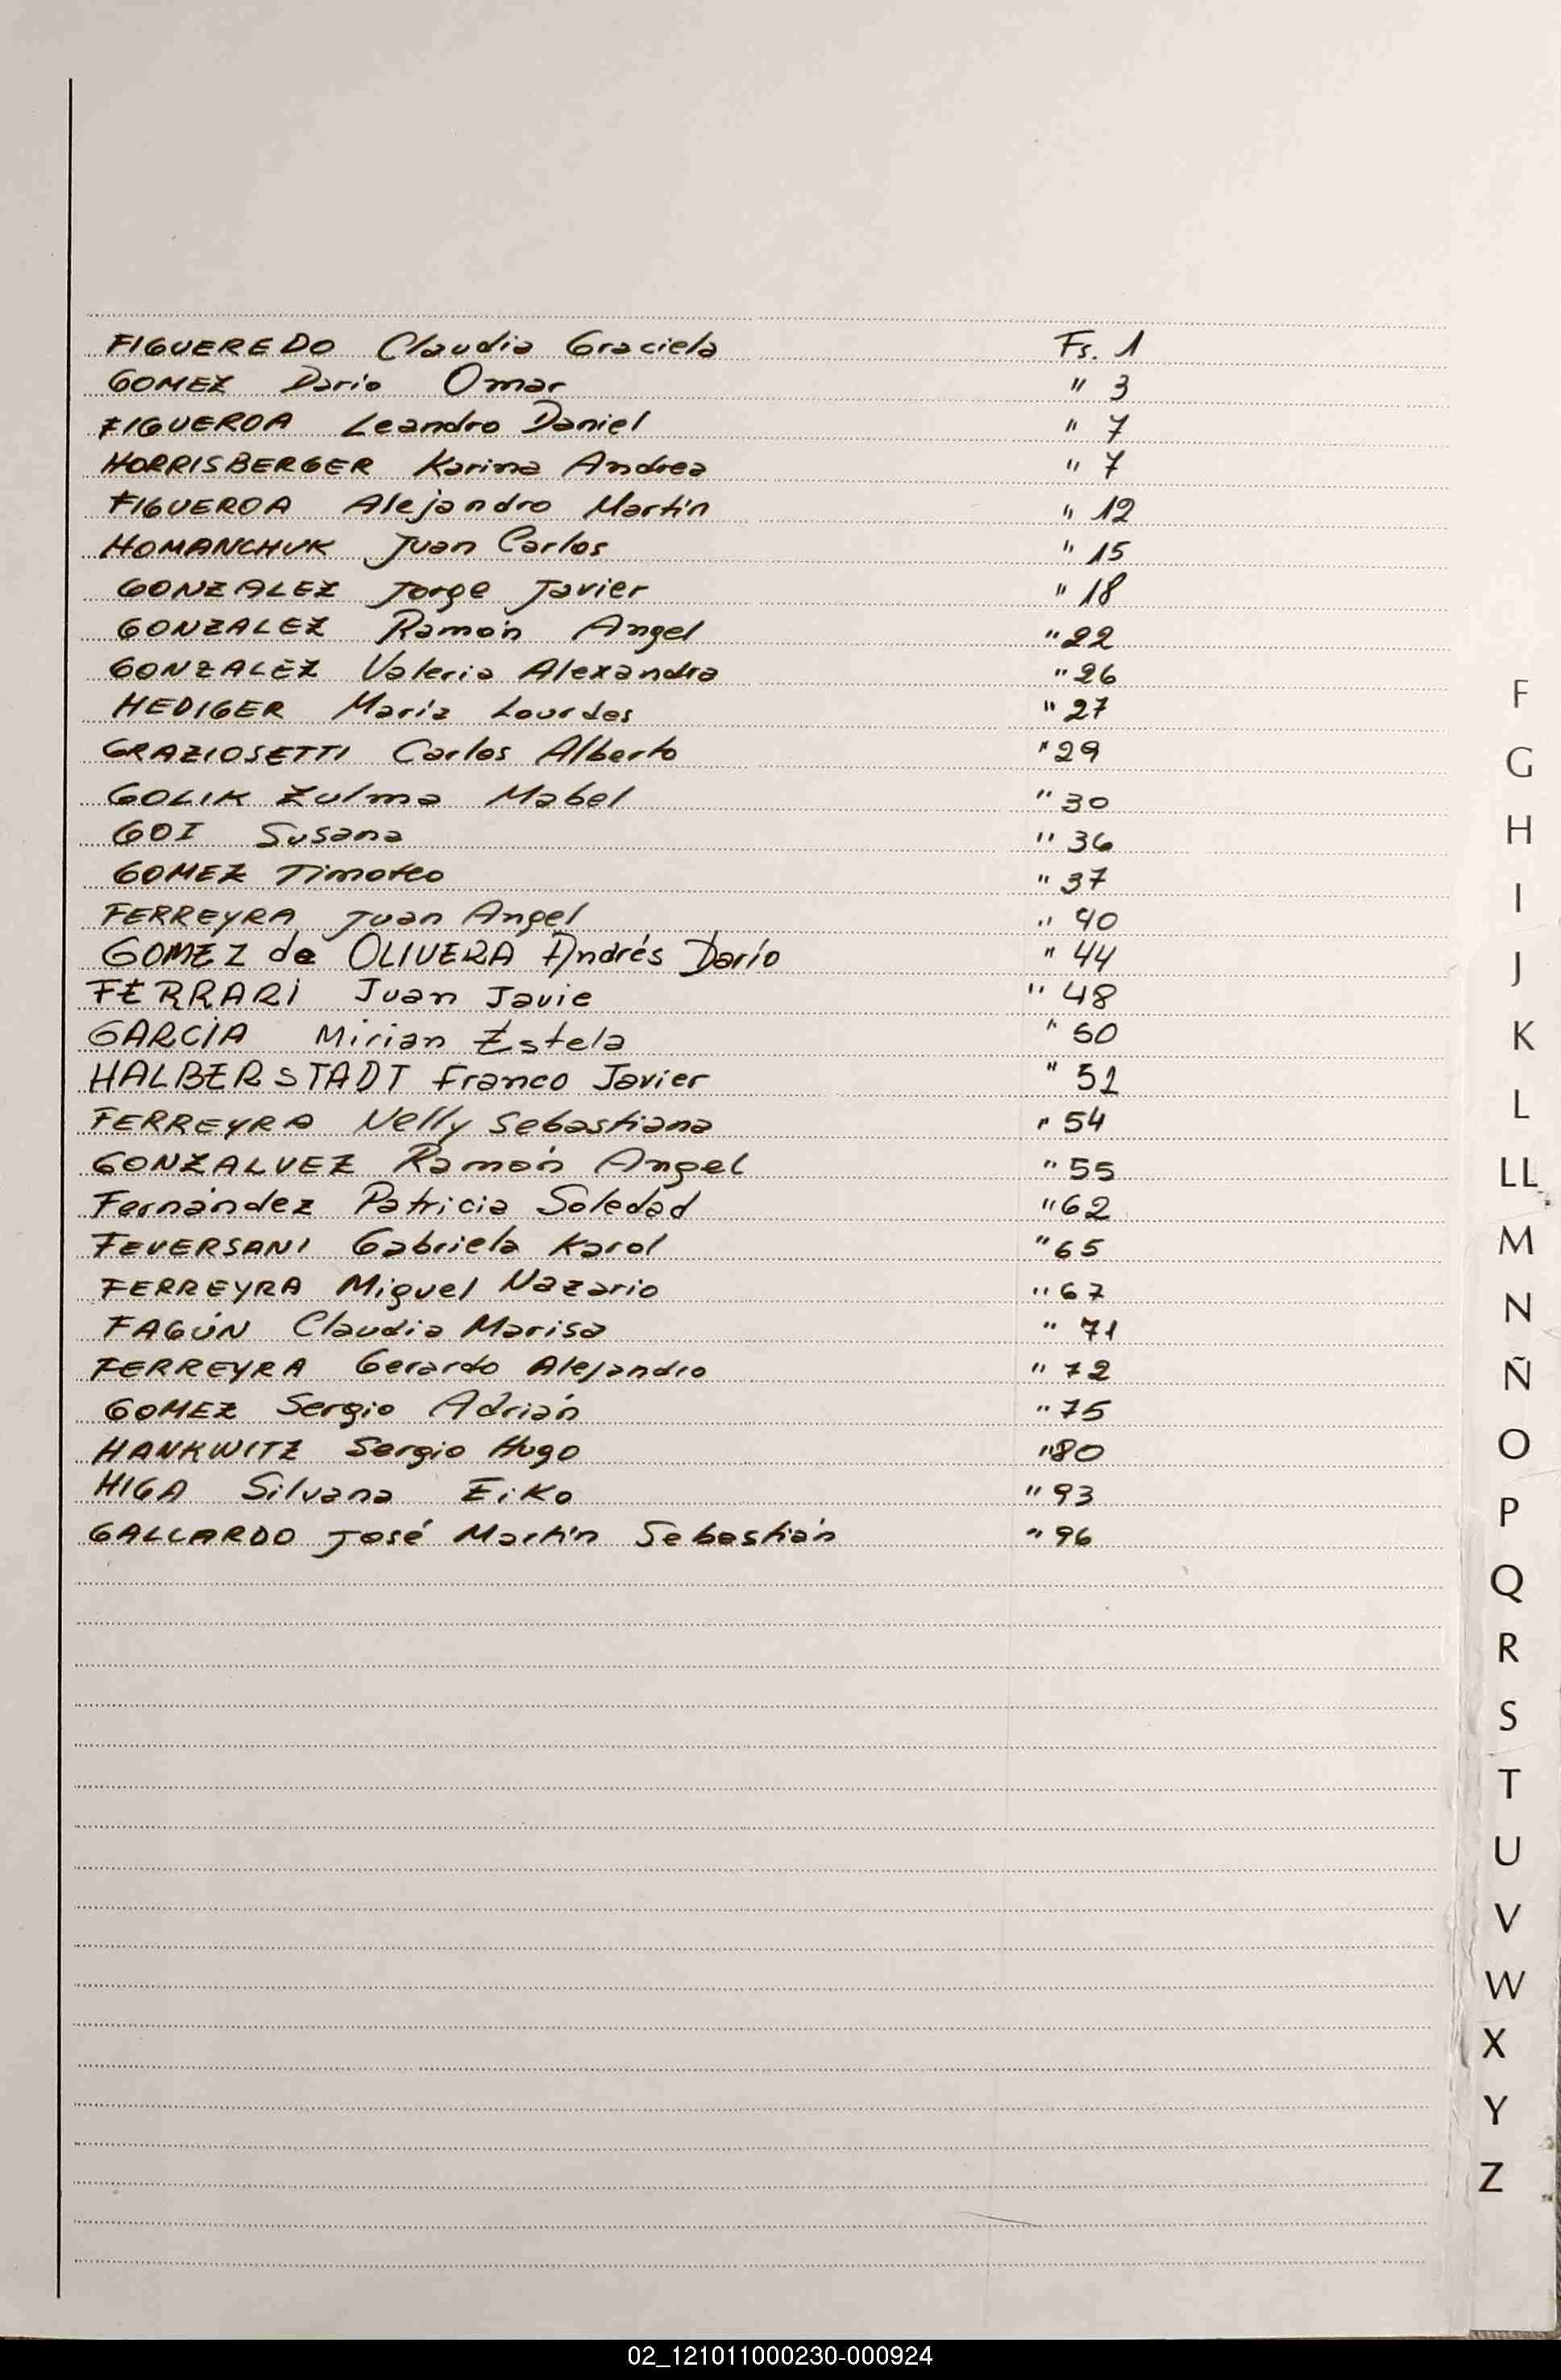 FIGUEREDO Claudia Graciela Fs. 1
GOMEZ Dario Omar " 3
FIGUEROA Leandro Daniel " 7
HORRISBERGER Karina Andrea " 7
FIGUEROA Alejandro Martín " 12
HOMANCHUK Juan Carlos " 15
GONZALEZ Jorge Javier " 18
GONZALEZ Ramón Angel " 22
GONZALEZ Valeria Alexandra " 26
HEDIGER María Lourdes " 27
GRAZIOSETTI Carlos Alberto " 29
GOLIK Zulma Mabel " 30
GOI Susana " 36
GOMEZ Timoteo " 37
FERREYRA Juan Angel " 40
GOMEZ de OLIVERA Andrés Darío " 44
FERRARI Juan Javie " 48
GARCÍA Mirian Estela " 50
HALBERSTADT Franco Javier " 51
FERREYRA Nelly Sebastiana " 54
GONZALVEZ Ramón Angel " 55
Fernández Patricia Soledad " 62
FEVERSANI Gabriela Karol " 65
FERREYRA Miguel Nazario " 67
FAGÚN Claudia Marisa " 71
FERREYRA Gerardo Alejandro " 72
GOMEZ Sergio Adrián " 75
HANKWITZ Sergio Hugo " 80
HIGA Silvana Eiko " 93
GALLARDO José Martín Sebastián " 96
F
G
H
I
J
K
L
LL
M
N
Ñ
O
P
Q
R
S
T
U
V
W
X
Y
Z
02_121011000230-000924